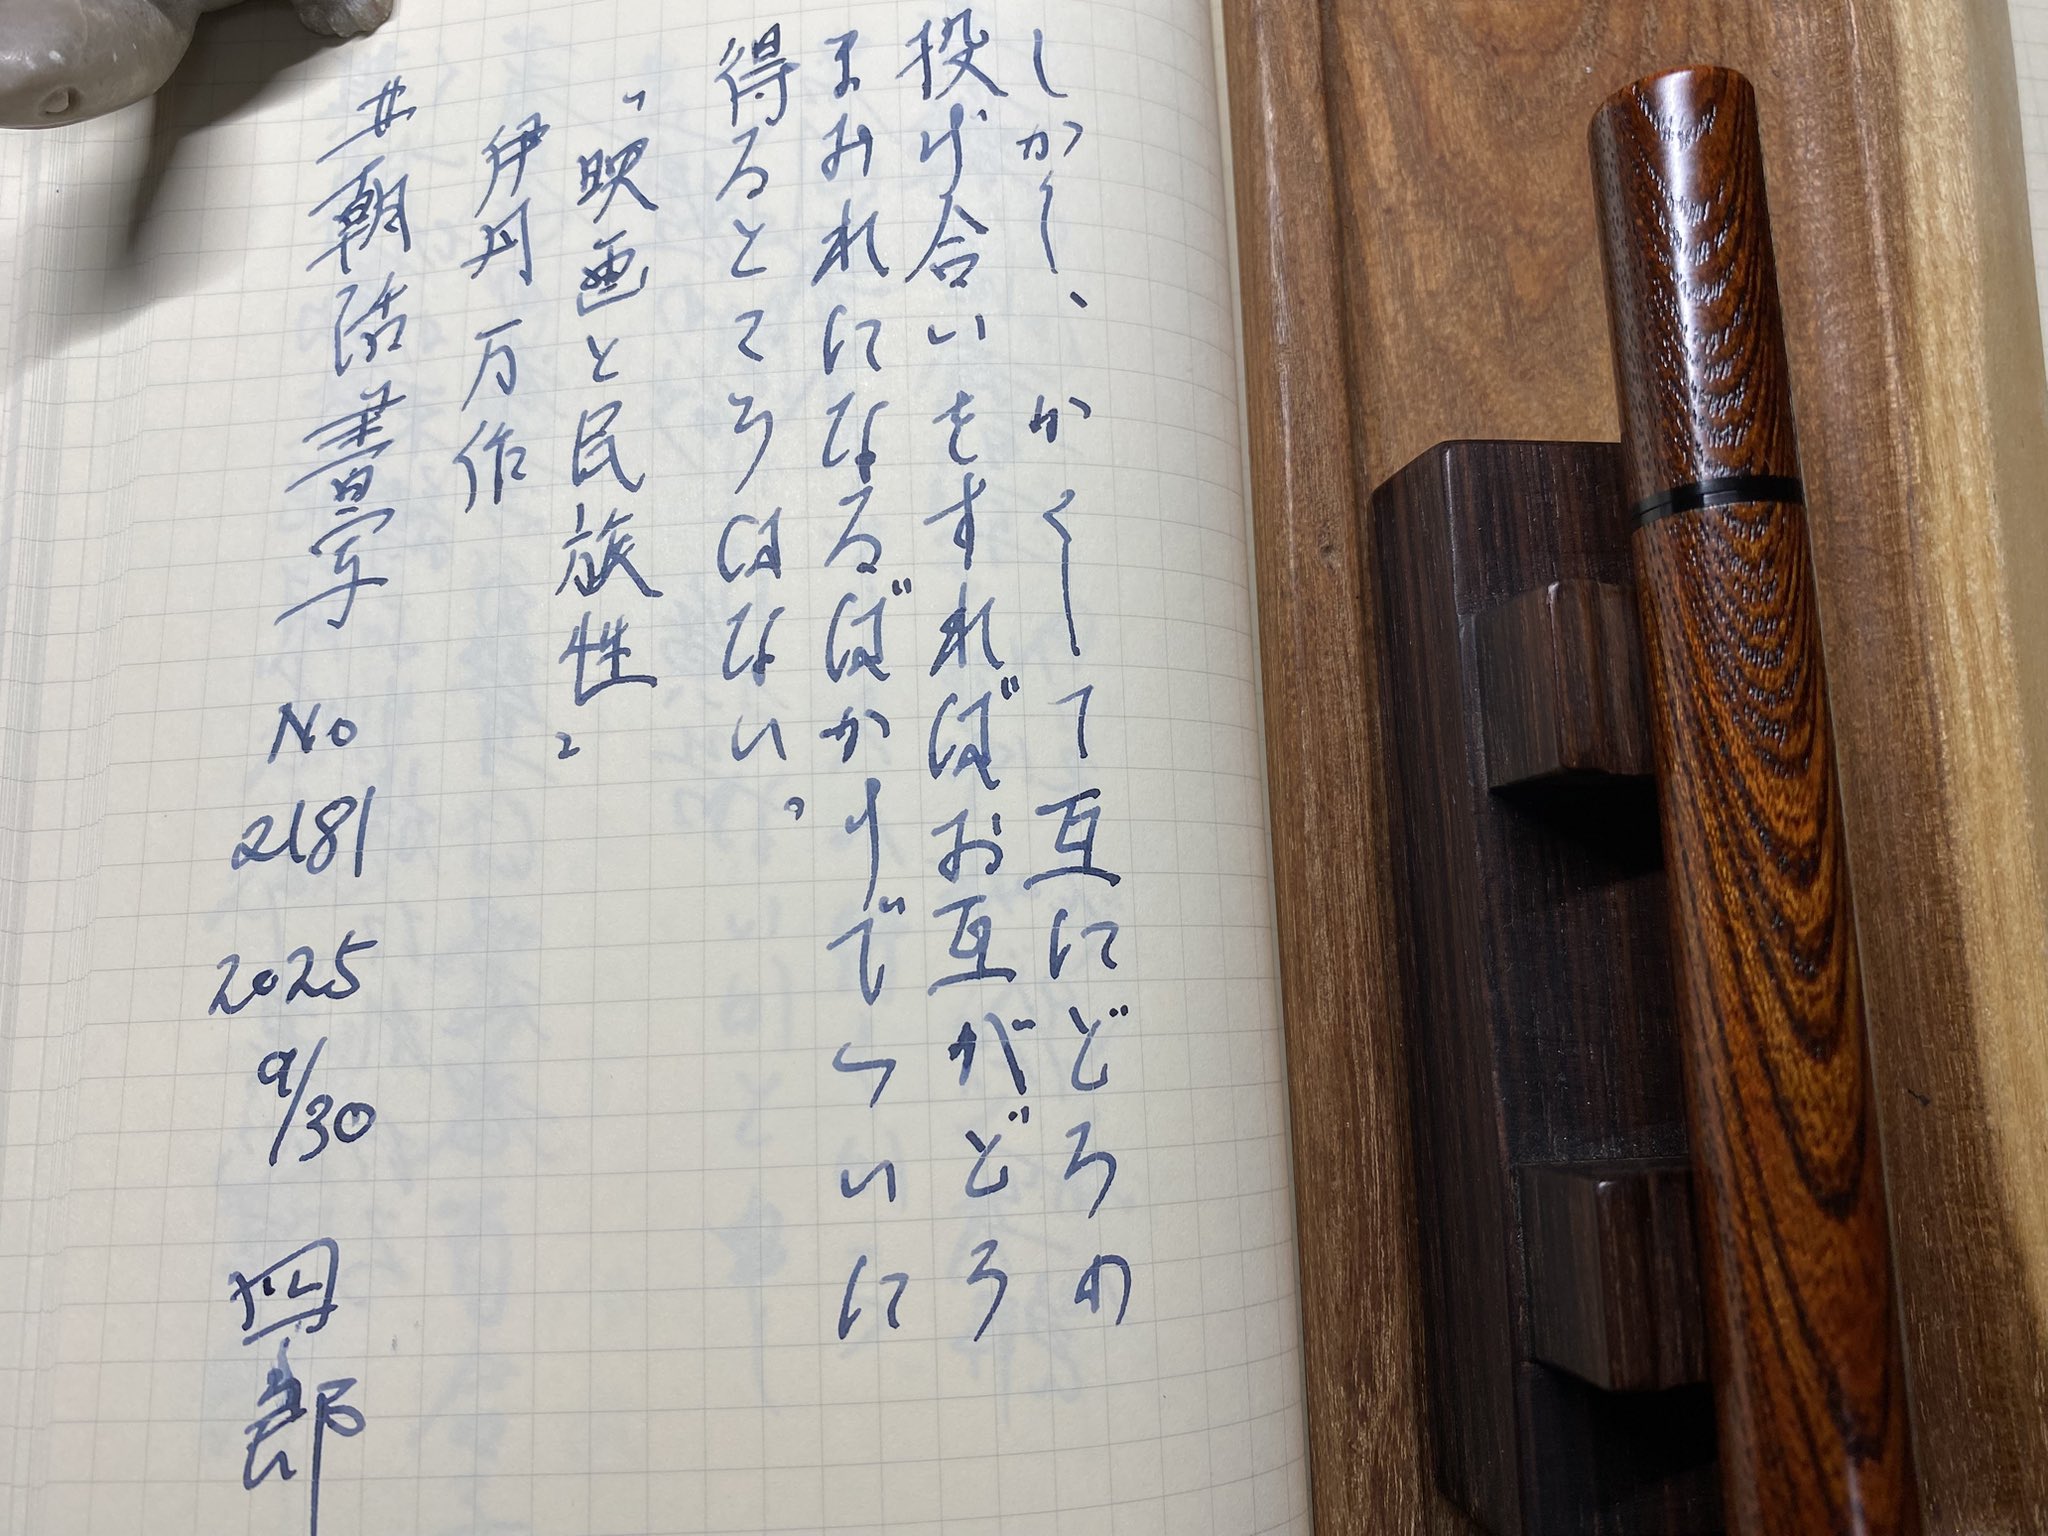 しかし、かくして互にどろの
投げ合いをすればお互がどろ
まみれになるばかりでついに
得るところはない。
「映画と民族性」
伊丹万作
#朝活書写 No 2181 2025 9/30